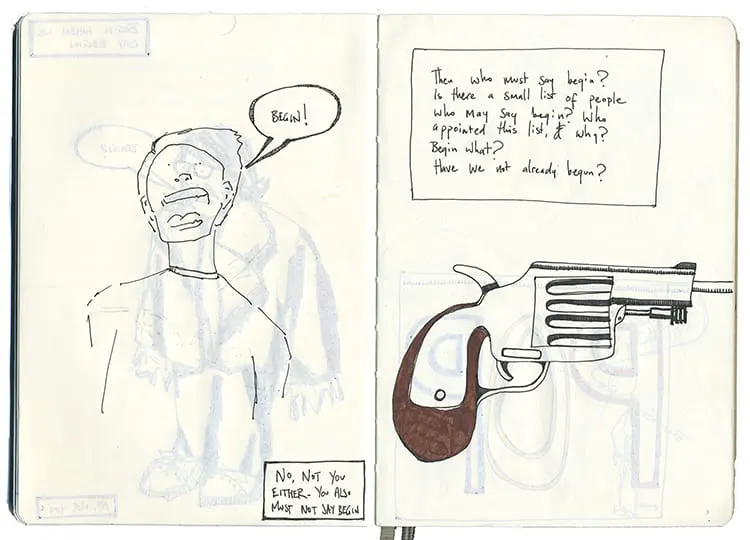 BEGIN!
NO, NOT YOU
EITHER. YOU ALSO
MUST NOT SAY BEGIN
Then who must say begin?
Is there a small list of people
who may say begin? Who
appointed this list, & why?
Begin what?
Have we not already begun?